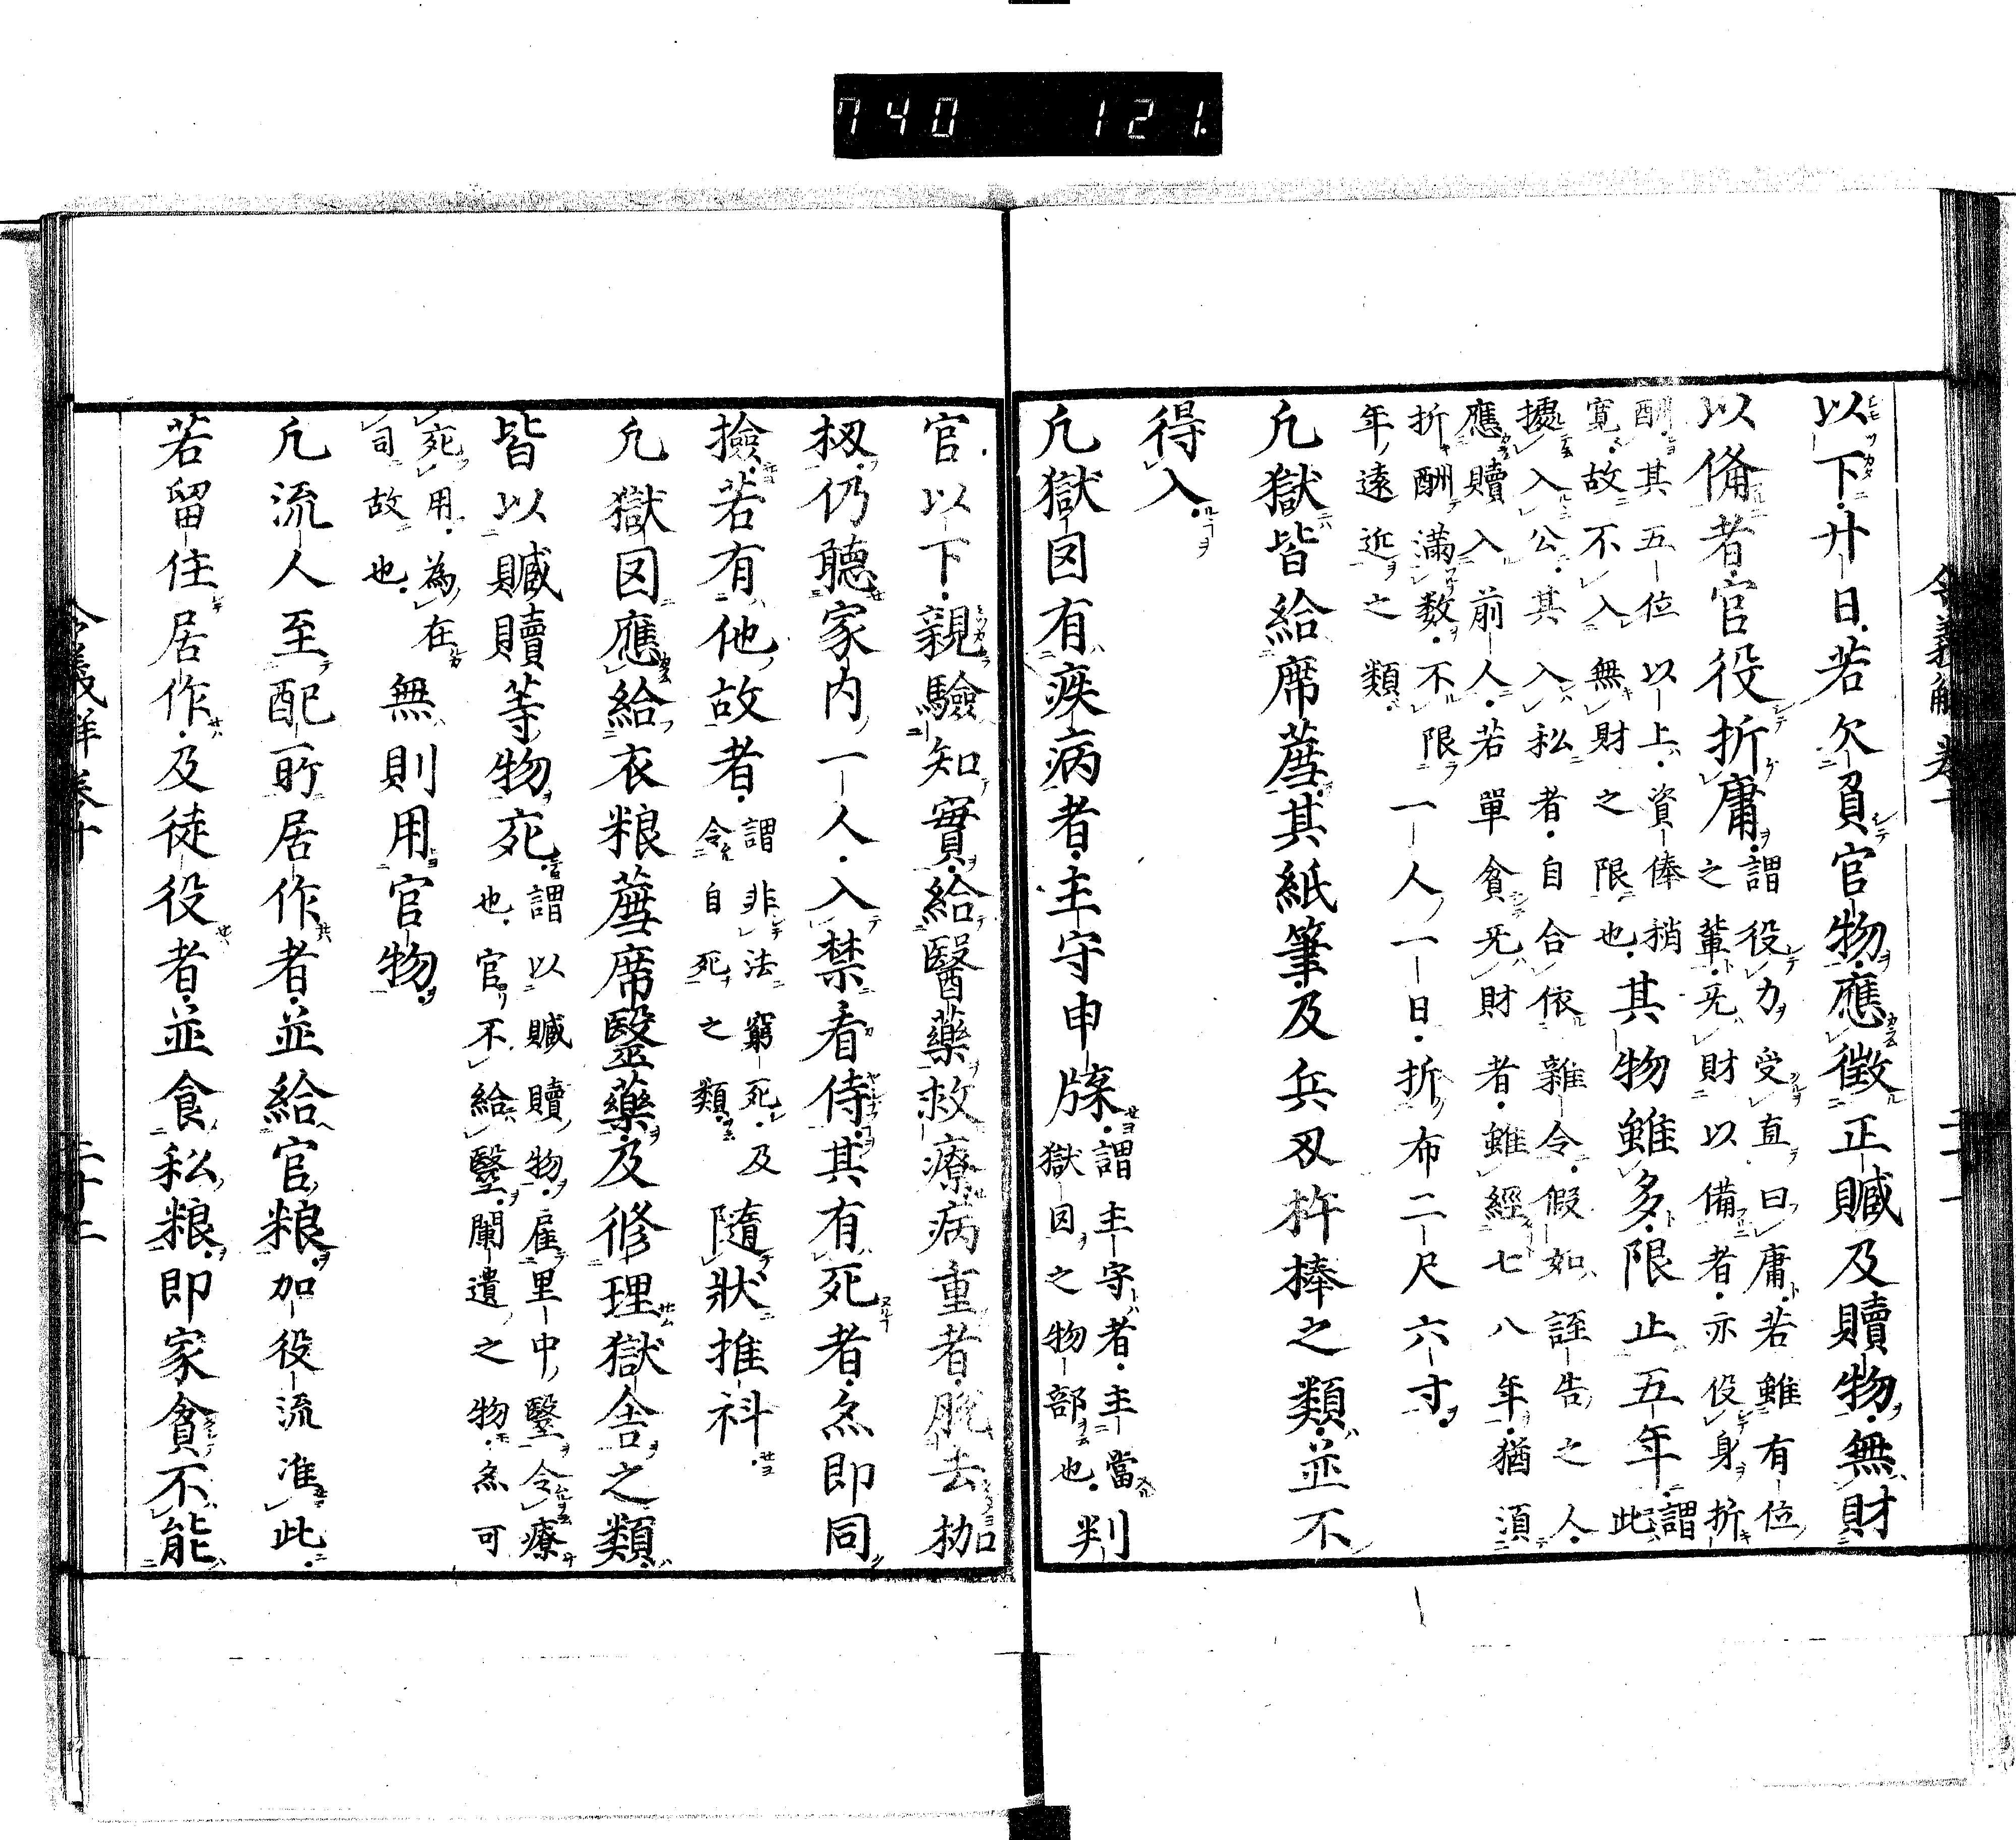 740 121
以下廿日若欠負官物應徵正贓及贖物無財
以備者官役折庸
謂役力受直曰庸若雖有位
之輩无財以備者亦役身折
酬其五位以上資俸稍
寛故不入無財之限也
其物雖多限止五年
謂
此
據入公其入私者自合依雜令假如誣告之人
應贖入前人若單貧无財者雖經七八年猶須
折酬滿数不限
年遠近之類
一人一日折布二尺六寸
凢獄皆給席薦其紙筆及兵刃杵捧之類並不
得入
凢獄囚有疾病者主守申牒
謂主守者主當
獄囚之物部也
判
官以下親驗知實給醫藥救療病重者脱去枷
杻仍聽家内一人入禁看侍其有死者亦即同
撿若有他故者
謂非法窮死及
令自死之類
隨狀推科
凢獄囚應給衣粮薦席毉藥及修理獄舎之類
皆以贓贖等物宛
謂以贓贖物雇里中毉令療
也官不給毉闌遺之物亦可
宛用為在
司故也
無則用官物
凢流人至配所居作者並給官粮加役流准此
若留住居作及徒役者並食私粮即家貧不能